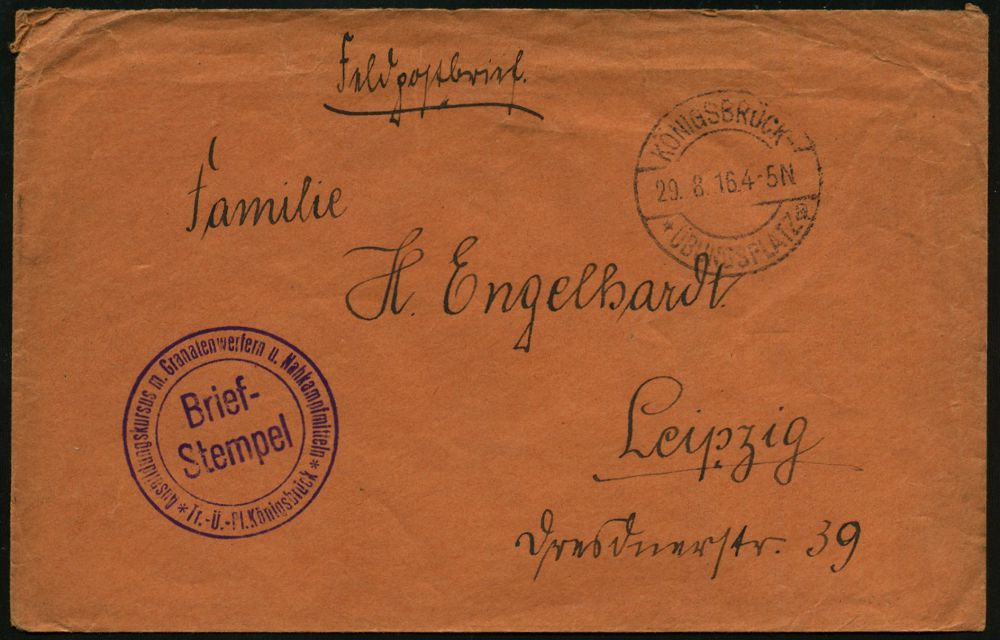 Feldpostbrief.
KÖNIGSBRÜCK-
29. 8. 16.4-5N
* ÜBUNGSPLATZ a
Familie
H. Engelhardt.
Ausbildungskursus m. Granatenwerfern u. Nahkampfmitteln
* Tr.-Ü.-Pl.Königsbrück *
Brief-
Stempel
Leipzig
Dresdnerstr. 39